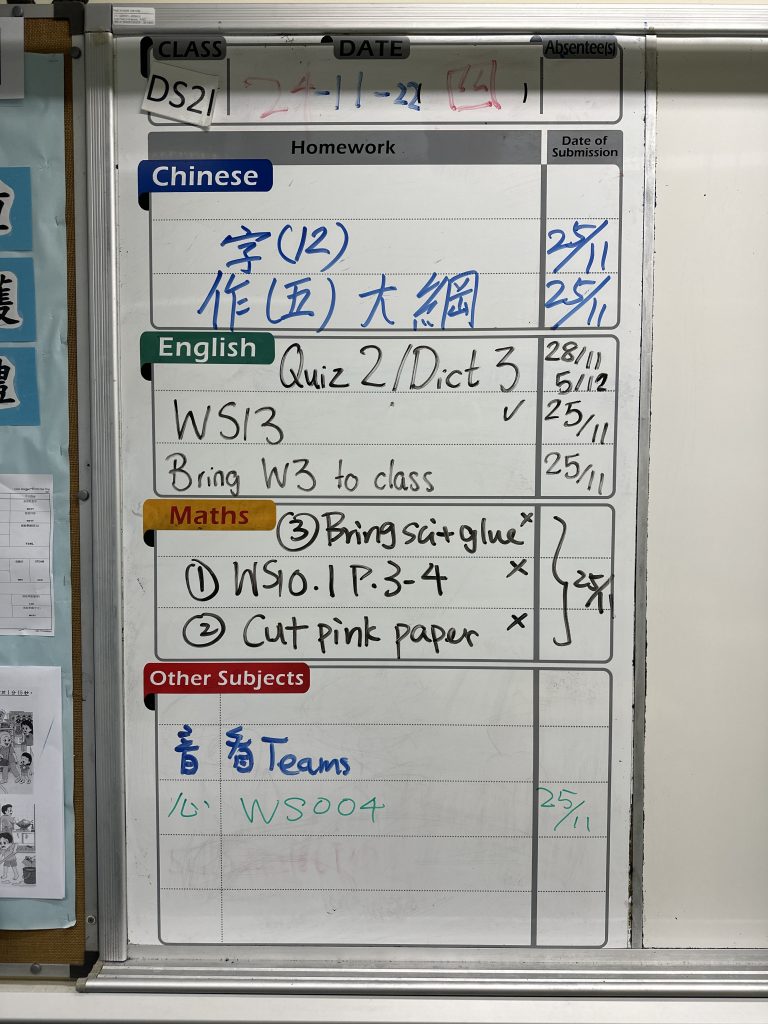 CLASS DATE Absentee(s)
DS21 24-11-22 四
Homework Date of Submission
Chinese
字(12) 25/11
作(五)大綱 25/11
English Quiz 2/Dict 3 28/11 5/12
WS13 ✓ 25/11
Bring W3 to class 25/11
Maths ③Bring sci+glue x
① WS10.1 P.3-4 x 25/11
② Cut pink paper x
Other Subjects
音 看Teams
心 WS004 25/11
獲